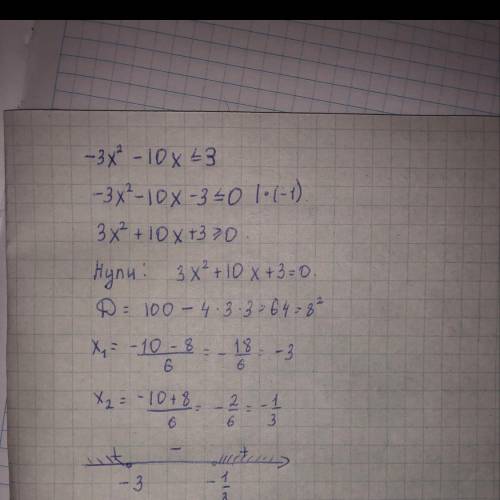 -3x² - 10x ≤ 3
-3x² - 10x - 3 ≤ 0 | · (-1)
3x² + 10x + 3 ≥ 0.
Нули: 3x² + 10x + 3 = 0.
D = 100 - 4 · 3 · 3 = 64 = 8²
x₁ = (-10 - 8)/6 = -18/6 = -3
x₂ = (-10 + 8)/6 = -2/6 = -1/3
+ - +
-3 -1/3